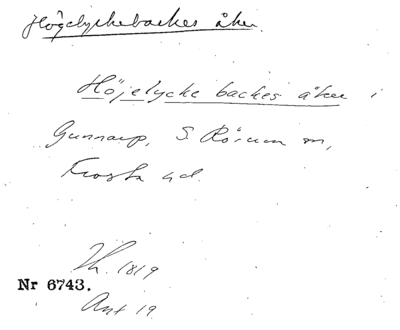 Högelyckebackes åker.
Höjelycke backes åker i
Gunnarp, S. Rörum sn,
Frosta hd.
Th. 1819
Nr 6743.
Ant 19